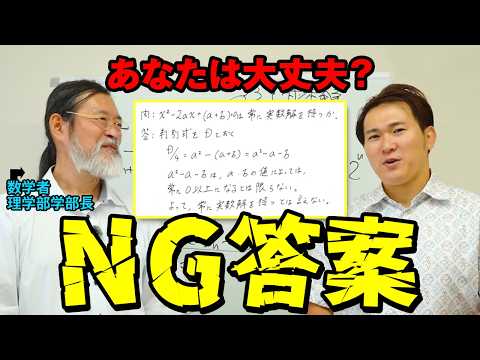 あなたは大丈夫?
問: x²-2ax+(a+b)=0は常に実数解を持つか。
答: 判別式をDとおく
D/4=a²-(a+b)=a²-a-b
a²-a-bは、a・bの値によっては、
常に0以上になるとは限らない。
よって、常に実数解を持つとは言えない。
数学者
理学部学部長
NG答案